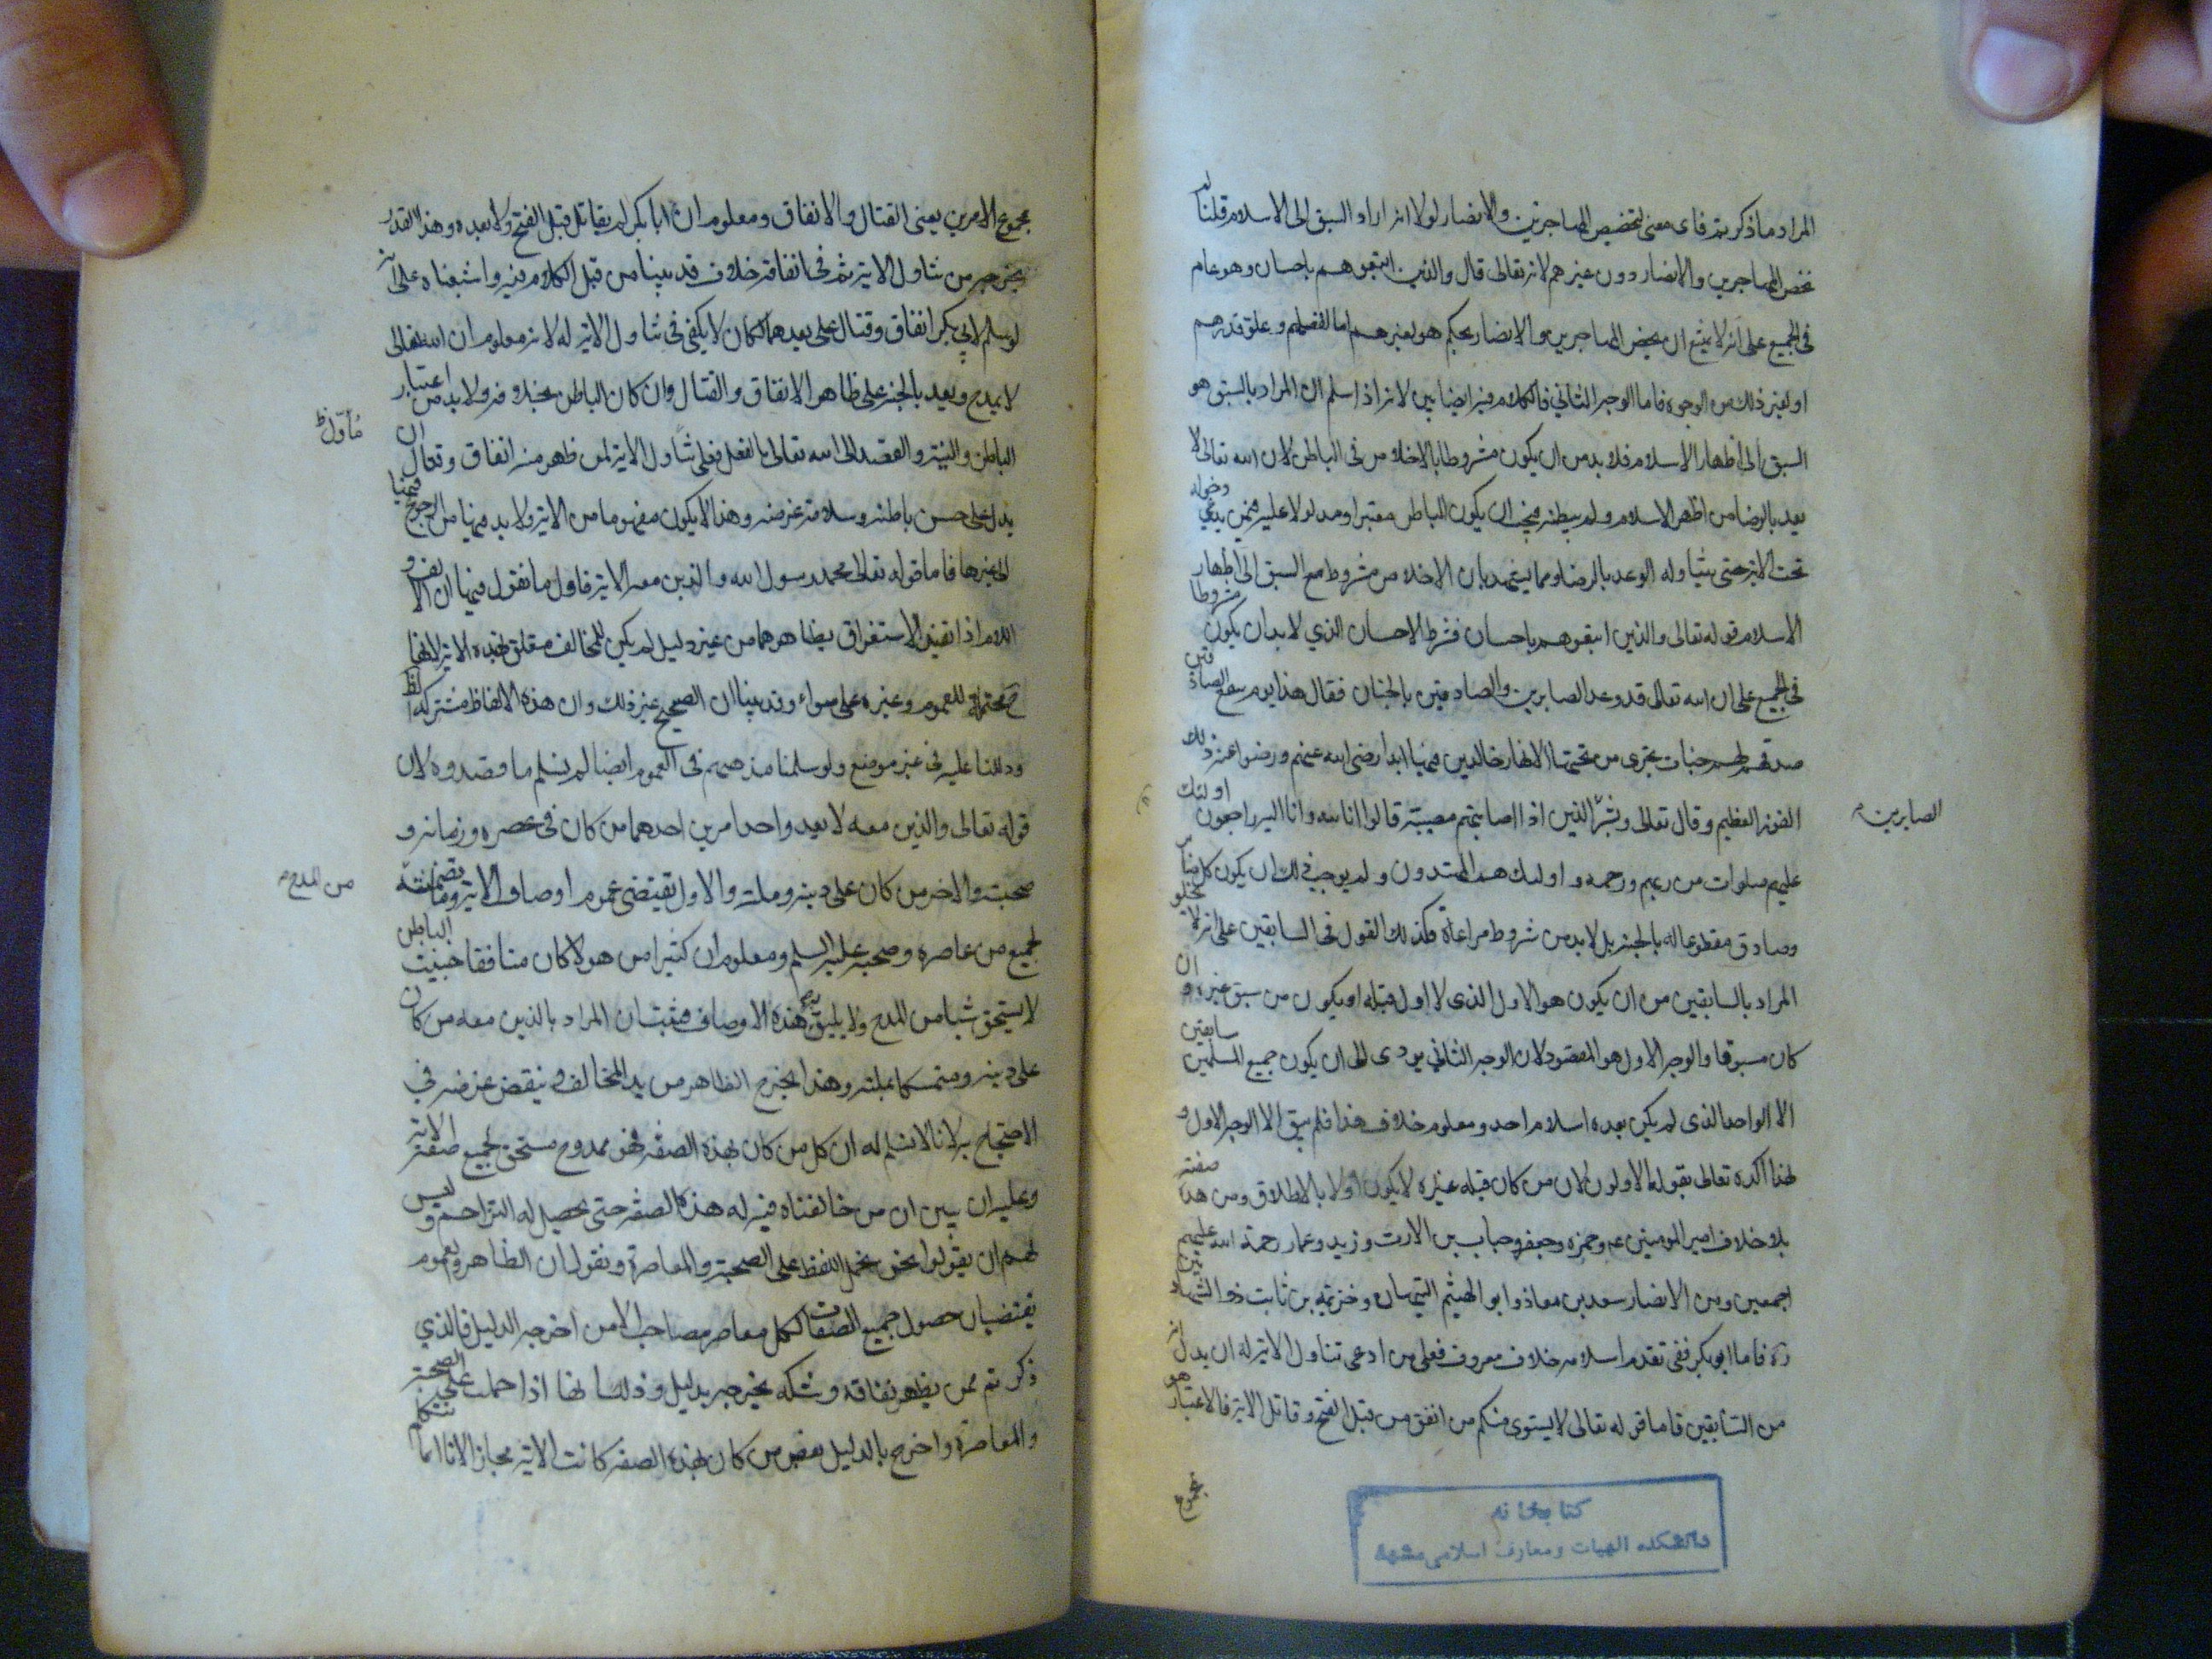 المراد ما ذكرتم فاى معنى لتخصيص المهاجرين والانصار لولا انه اراد السبق الى الاسلام قلنا لم
يخص المهاجرين والانصار دون غيرهم لانه تعالى قال والذين اتبعوهم باحسان وهو عام
فى الجميع على انه لا يمتنع ان يخص المهاجرين والانصار بحكم هو لغيرهم اما لفضلهم وعلو قدرهم
او لغير ذلك من الوجوه فاما الوجه الثانى فالكلام فيه ايضا بين لانه اذا سلم ان المراد بالسبق هو
السبق الى اظهار الاسلام فلابد من ان يكون مشروطا بالاخلاص فى الباطن لان الله تعالى لا
يعد بالرضا من اظهر الاسلام ولم يبطنه فيجب ان يكون الباطن معتبرا ومدلولا عليه فيمن يدعى دخوله
تحت الاية حتى يتناوله الوعد بالرضا ومما يشهد بان الاخلاص مشروط مع السبق الى اظهار
الاسلام قوله تعالى والذين اتبعوهم باحسان فشرط الاحسان الذي لابد ان يكون مشروطا
فى الجميع على ان الله تعالى قد وعد الصابرين والصادقين بالجنان فقال هذا يوم ينفع الصادقين
صدقهم لهم جنات تجرى من تحتها الانهار خالدين فيها ابدا رضى الله عنهم ورضوا عنه ذلك
الفوز العظيم وقال تعالى وبشر الذين اذا اصابتهم مصيبة قالوا انا لله وانا اليه راجعون اولئك
الصابرين
عليهم صلوات من ربهم ورحمة واولئك هم المهتدون ولم يوجب ذلك ان يكون كل صابر
وصادق مقطوعا له بالجنة بل لابد من شروط مراعاة فكذلك القول فى السابقين على انه لا يخلو
المراد بالسابقين من ان يكون هو الاول الذى لا اول قبله او يكون من سبق غيره وان
كان مسبوقا والوجه الاول هو المقصود لان الوجه الثاني يودى الى ان يكون جميع المسلمين سابقين
الا الواحد الذى لم يكن بعده اسلام احد ومعلوم خلاف هذا فلم يبق الا الوجه الاول و
لهذا اكده تعالى بقوله الاولون لان من كان قبله غيره لا يكون اولا بالاطلاق ومن هذه صفته
بلا خلاف امير المومنين عم وحمزه وجعفر وخباب بن الارت وزيد وعمار رحمة الله عليهم
اجمعين ومن الانصار سعد بن معاذ وابو الهيثم التيهان وخزيمه بن ثابت ذو الشهادتين
ره فاما ابو بكر ففى تقدم اسلامه خلاف معروف فعلى من ادعى تناول الاية له ان يدل انه
من السابقين فاما قوله تعالى لا يستوى منكم من انفق من قبل الفتح وقاتل الاية فالاعتبار هو
مجموع
كتابخانه
دانشكده الهيات ومعارف اسلامى مشهد
مجموع الامرين يعنى القتال والانفاق ومعلوم ان ابا بكر لم يقاتل قبل الفتح ولا بعده وهذا القدر
يخرجه من تناول الاية ثم فى انفاقه خلاف قد بينا من قبل الكلام فيه واشبعناه على انه
لو سلم لابي بكر انفاق وقتال على بعدهما لكان لا يكفى فى تناول الاية له لانه معلوم ان الله تعالى
لا يمدح ويعد بالجنة على ظاهر الانفاق والقتال وان كان الباطن بخلافه ولابد من اعتبار
الباطن والنية والقصد الى الله تعالى بالفعل فعلى متاول الاية لمن ظهر منه انفاق وقتال ان
يدل على حسن باطنه وسلامة غرضه وهذا لا يكون مفهوما من الاية ولابد فيها من الرجوع
الى غيرها فاما قوله تعالى محمد رسول الله والذين معه الاية فاول ما نقول فيها ان الالف و
اللام اذا لم تقتض الاستغراق بظاهرهما من غير دليل لم يكن للمخالف متعلق بهذه الاية لانها
محتملة للعموم وغيره على سواء وقد بينا ان الصحيح غير ذلك وان هذه الالفاظ مشتركة
ودللنا عليه فى غير موضع ولو سلمنا مذهبهم فى العموم ايضا لم نسلم ما قصدوه لان
قوله تعالى والذين معه لا يعدو احد امرين احدهما من كان فى عصره وزمانه و
صحبته والاخر من كان على دينه وملته والاول يقتضى عموم اوصاف الاية وما تضمنته
من المدح
لجميع من عاصره وصحبه عليه السلم ومعلوم ان كثيرا من هولا كان منافقا خبيث الباطن
لا يستحق شيا من المدح ولا يليق به هذه الاوصاف فثبت ان المراد بالذين معه من كان
على دينه ومتمسكا بملته وهذا يخرج الظاهر من يد المخالف وينقض غرضه في
الاحتجاج به لانا لا نسلم له ان كل من كان بهذه الصفه فهو ممدوح مستحق لجميع صفة الاية
وعليه ان يبين ان من خالفناه فيه له هذه الصفه حتى يحصل له التزاحم وليس
لهم ان يقولوا نحن نحمل اللفظ على الصحبة والمعاصرة ونقول ان الظاهر والعموم
يقتضيان حصول جميع الصفات لكل معاصر مصاحب الا من اخرجه الدليل فالذي
ذكرتم ممن يظهر نفاقه وشكه نخرجه بدليل وذلك انها اذا حملت على الصحبة
والمعاصرة واخرج بالدليل بعض من كان بهذه الصفه كانت الاية مجازا لانا انما